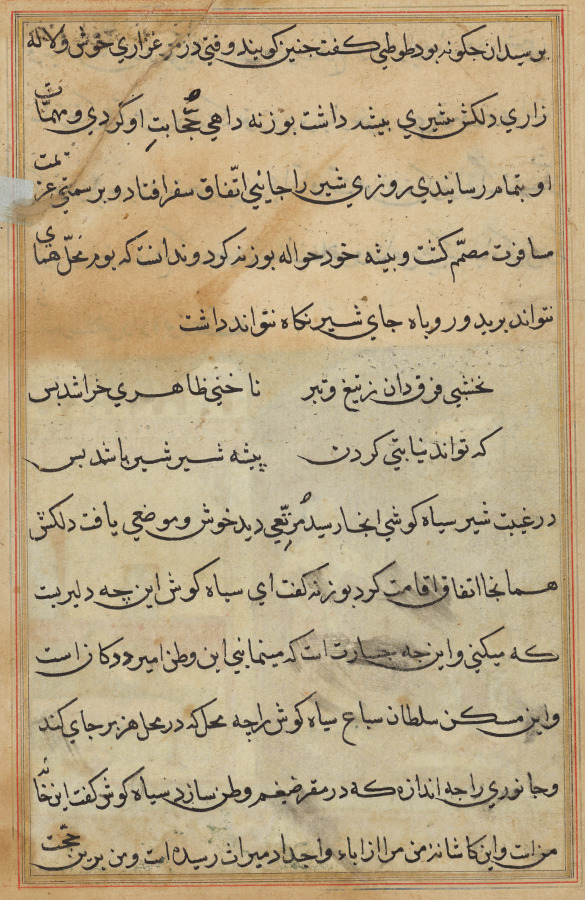 پرسید ان چکونه بود طوطی کفت چنین کویند وقتی در مرغزاری خوش و لاله
زاری دلکش شیری بیشه داشت بوزنه داهی حجابت او کردی و مهمّات
او بتمام رسانیدی روزی شیر را جائی اتّفاق سفر افتاد و بر سمتی عزیمت
مسافرت مصمّم کشت و بیشه خود حواله بوزنه کرد و ندانست که بوم محلّ همای
نتواند برید و روباه جای شیر نکاه نتواند داشت
نخشبی فرق دان ز تیغ و تبر ناخنی ظاهری خراشد بس
که تواند نیابتی کردن بیشه شیر شیر باشد بس
در غیبت شیر سیاه کوشی انجا رسید مرتعی دید خوش و موضعی یافت دلکش
همانجا اتفاق اقامت کرد بوزنه کفت ای سیاه کوش این چه دلیریت
که میکنی و این چه جسارت است که مینمایی این وطن امیر ددکان است
و این مسکن سلطان سباع سیاه کوش را چه محل که در محل هزبر جای کند
و جانوری را چه اندازه که در مقر ضیغم وطن سازد سیاه کوش کفت این خانه
من است و این کاشانه من مرا از اباء و اجداد میراث رسیده است و من برین حجّت